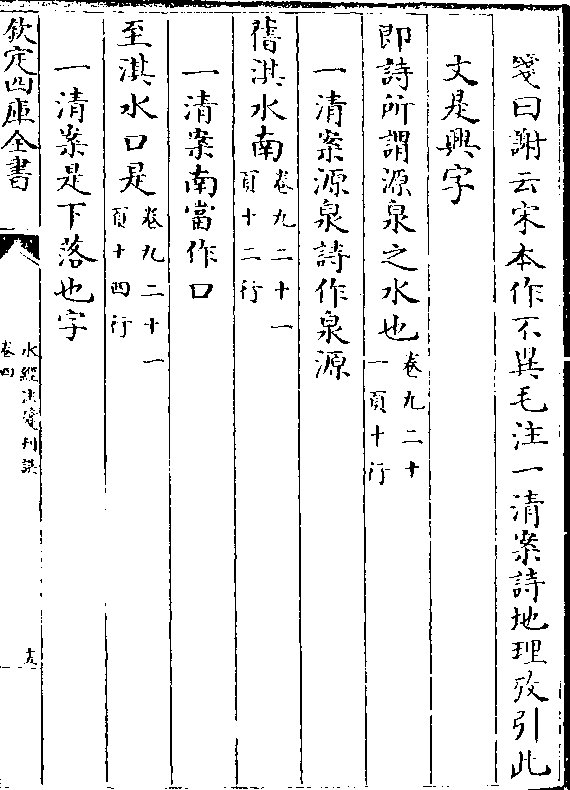 箋曰謝云宋本作不異毛注一清案詩地理攷引此
文是興字
即詩所謂源泉之水也卷九二十一頁十行
一清案源泉詩作泉源
舊淇水南卷九二十一頁十二行
一清案南當作口
至淇水口是卷九二十一頁十四行
一清案是下落也字
欽定四庫全書
水經注箋刊誤
卷四
十九